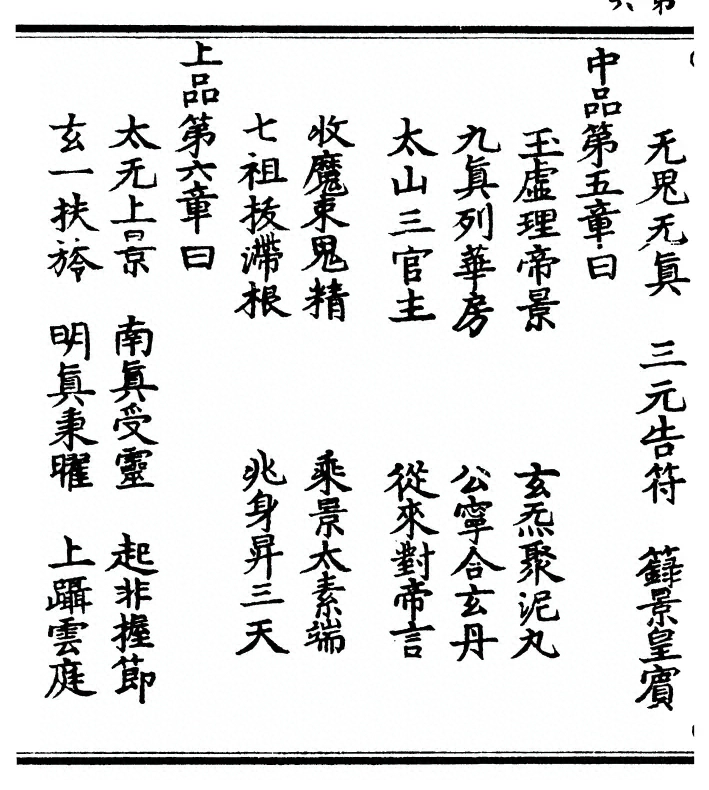 无鬼无眞　三元告符　籙景皇賓
中品第五章曰
玉虛理帝景　玄炁聚泥丸
九眞列華房　公寧合玄丹
太山三官主　從來對帝言
收魔束鬼精　乘景太素端
七祖拔滯根　兆身昇三天
上品第六章曰
太无上景　南眞受靈　起非握節
玄一扶衿　明眞秉曜　上躡雲庭